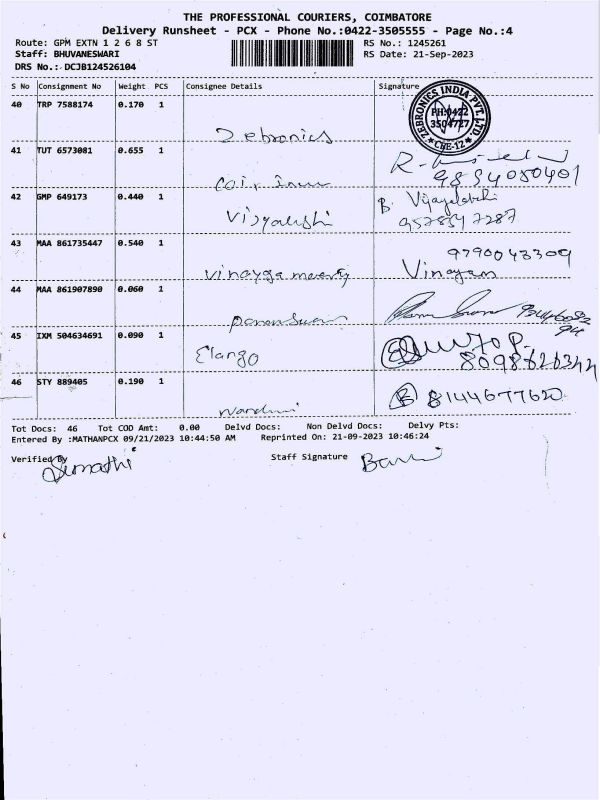 THE PROFESSIONAL COURIERS, COIMBATORE
Delivery Runsheet - PCX - Phone No.:0422-3505555 - Page No.:4
Route: GPM EXTN 1 2 6 8 ST
RS No.: 1245261
Staff: BHUVANESWARI
RS Date: 21-Sep-2023
DRS No.: DCJB124526104
S No Consignment No Weight PCS Consignee Details Signature
40 TRP 7588174 0.170 1
ZEBRONICS INDIA PVT. LTD.
PH:0422
3504727
CHE-12
Zebronics
41 TUT 6573081 0.655 1
42 GMP 649173 0.440 1
B. Vijayalakshi
43 MAA 861735447 0.540 1
9790043309
Vinayga moorty Vinayan
44 MAA 861907890 0.060 1
45 IXM 504634691 0.090 1
Elango
8098626342
46 STY 889405 0.190 1
8144677620
Tot Docs: 46 Tot COD Amt: 0.00 Delvd Docs: Non Delvd Docs: Delvy Pts:
Entered By :MATHANPCX 09/21/2023 10:44:50 AM Reprinted On: 21-09-2023 10:46:24
Verified By Sumathi Staff Signature